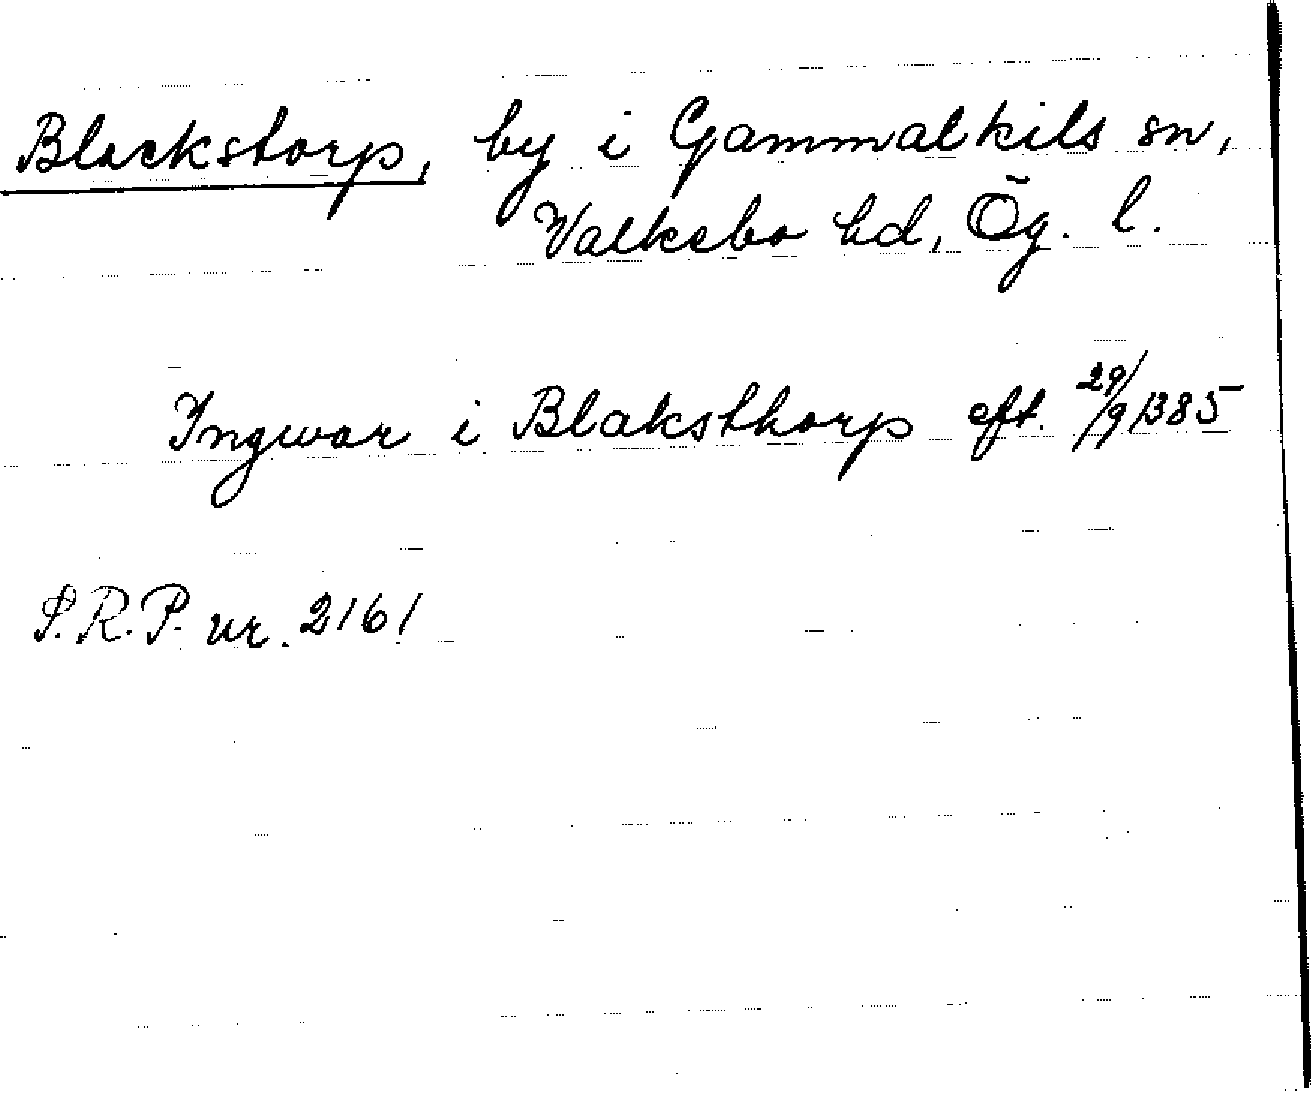 Blackstorp, by i Gammalkils sn,
Valkebo hd, Ög. l.
Ingwar i Blaksthorp eft. 29/9 1385
S.R.P. nr. 2161